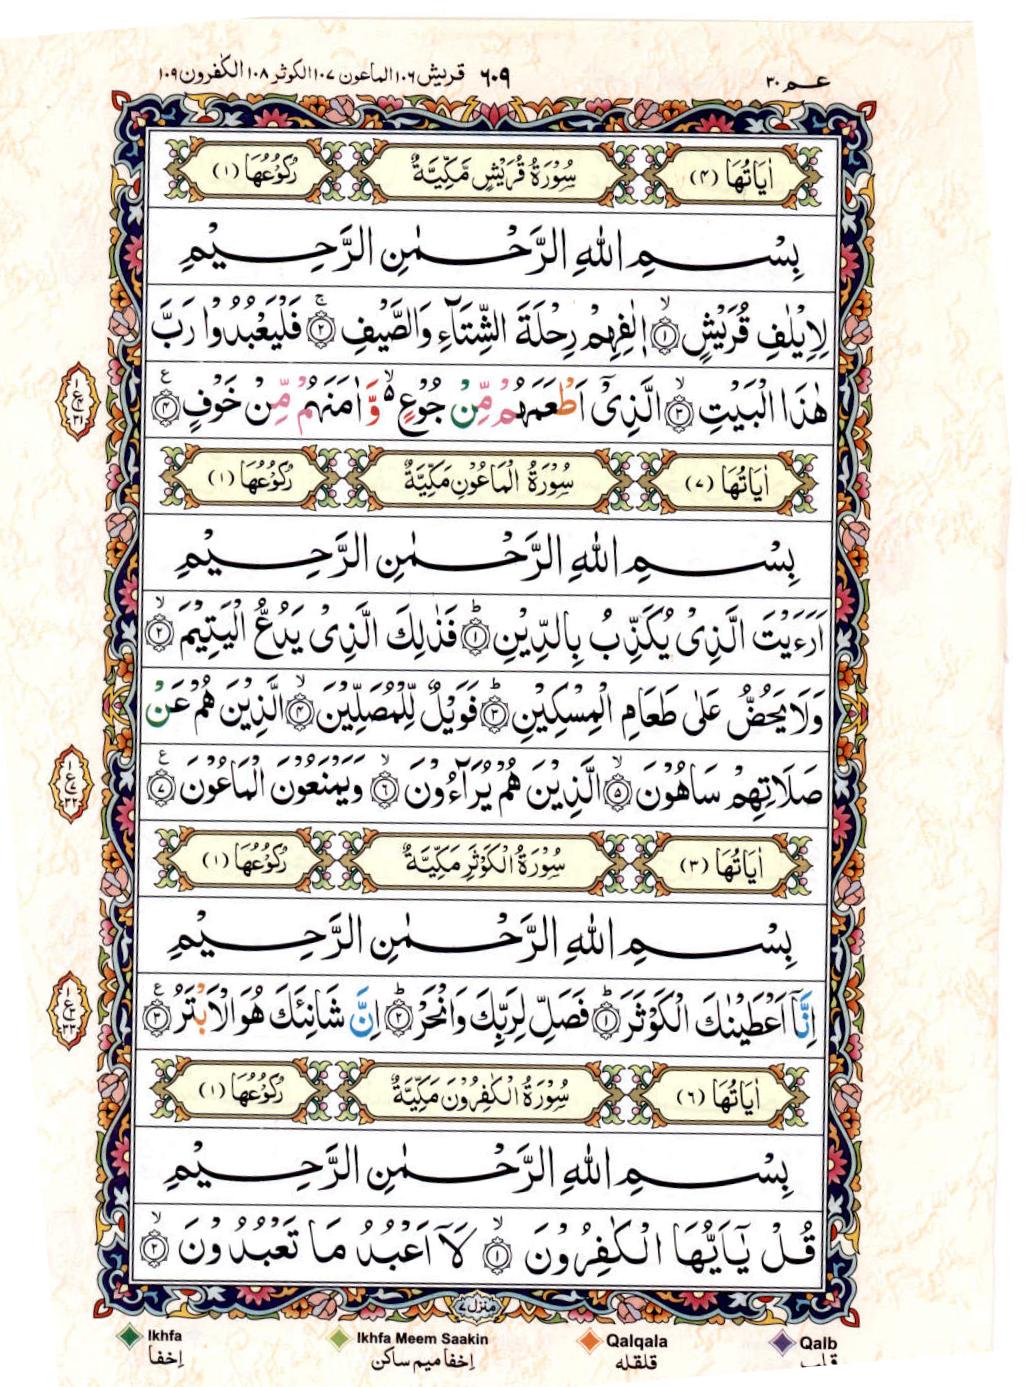 عم ۳۰ ۶۰۹ قریش ۱۰۶ الماعون ۱۰۷ الکوثر ۱۰۸ الکٰفرون ۱۰۹
اٰيَاتُهَا (۴) سُوْرَةُ قُرَيْشٍ مَّكِّيَّةٌ رُكُوْعُهَا (۱)
بِسْمِ اللّٰهِ الرَّحْمٰنِ الرَّحِيْمِ
لِاِيْلٰفِ قُرَيْشٍ ۙ‏﴿۱﴾ اٖلٰفِهِمْ رِحْلَةَ الشِّتَآءِ وَالصَّيْفِ ۚ‏﴿۲﴾ فَلْيَعْبُدُوْا رَبَّ
هٰذَا الْبَيْتِ ۙ‏﴿۳﴾ الَّذِىْٓ اَطْعَمَهُمْ مِّنْ جُوْعٍ ۙ۬ وَّاٰمَنَهُمْ مِّنْ خَوْفٍ ‏﴿۴﴾
۱ ع ۴ ۳۱
اٰيَاتُهَا (۷) سُوْرَةُ الْمَاعُوْنِ مَكِّيَّةٌ رُكُوْعُهَا (۱)
بِسْمِ اللّٰهِ الرَّحْمٰنِ الرَّحِيْمِ
اَرَءَيْتَ الَّذِىْ يُكَذِّبُ بِالدِّيْنِ ؕ‏﴿۱﴾ فَذٰلِكَ الَّذِىْ يَدُعُّ الْيَتِيْمَ ۙ‏﴿۲﴾
وَلَا يَحُضُّ عَلٰى طَعَامِ الْمِسْكِيْنِ ؕ‏﴿۳﴾ فَوَيْلٌ لِّلْمُصَلِّيْنَ ۙ‏﴿۴﴾ الَّذِيْنَ هُمْ عَنْ
صَلَاتِهِمْ سَاهُوْنَ ۙ‏﴿۵﴾ الَّذِيْنَ هُمْ يُرَآءُوْنَ ۙ‏﴿۶﴾ وَيَمْنَعُوْنَ الْمَاعُوْنَ ‏﴿۷﴾
۱ ع ۷ ۳۲
اٰيَاتُهَا (۳) سُوْرَةُ الْكَوْثَرِ مَكِّيَّةٌ رُكُوْعُهَا (۱)
بِسْمِ اللّٰهِ الرَّحْمٰنِ الرَّحِيْمِ
اِنَّآ اَعْطَيْنٰكَ الْكَوْثَرَ ؕ‏﴿۱﴾ فَصَلِّ لِرَبِّكَ وَانْحَرْ ؕ‏﴿۲﴾ اِنَّ شَانِئَكَ هُوَ الْاَبْتَرُ ‏﴿۳﴾
۱ ع ۳ ۳۳
اٰيَاتُهَا (۶) سُوْرَةُ الْكٰفِرُوْنَ مَكِّيَّةٌ رُكُوْعُهَا (۱)
بِسْمِ اللّٰهِ الرَّحْمٰنِ الرَّحِيْمِ
قُلْ يٰٓاَيُّهَا الْكٰفِرُوْنَ ۙ‏﴿۱﴾ لَآ اَعْبُدُ مَا تَعْبُدُوْنَ ۙ‏﴿۲﴾
منزل ۷
Ikhfa Ikhfa Meem Saakin Qalqala Qalb
اِخفا اِخفا میم ساکن قلقله قلب